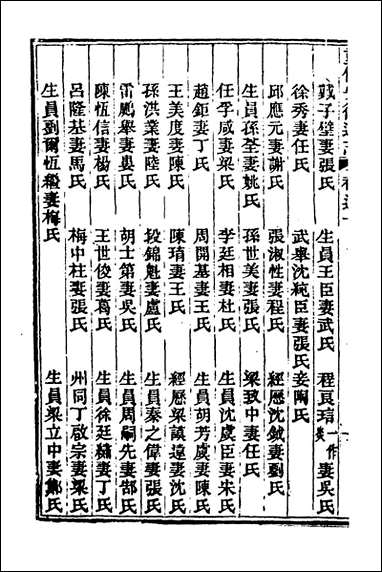 戴子璧妻張氏 生員王臣妻武氏 程良瑄一作炎妻吳氏
徐秀妻任氏 武舉沈統臣妻張氏妾陶氏
邱應元妻謝氏 張淑性妻程氏 經歷沈鉞妻劉氏
生員孫荃妻姚氏 孫世美妻張氏 梁致中妻任氏
任孚咸妻梁氏 李廷相妻杜氏 生員沈虞臣妻宋氏
趙鉅妻丁氏 周開基妻王氏 生員胡芳虞妻陳氏
王美度妻陳氏 陳瑃妻王氏 經歷梁議遠妻沈氏
孫洪業妻陸氏 段錦魁妻盧氏 生員秦之偉妻張氏
雷鵬舉妻婁氏 胡士第妻吳氏 生員周嗣先妻郜氏
陳恆信妻楊氏 王世俊妻葛氏 生員徐廷樞妻丁氏
呂隆基妻馬氏 梅中柱妻張氏 州同丁啟宗妻梁氏
生員劉爾恆繼妻梅氏 生員梁立中妻鄭氏